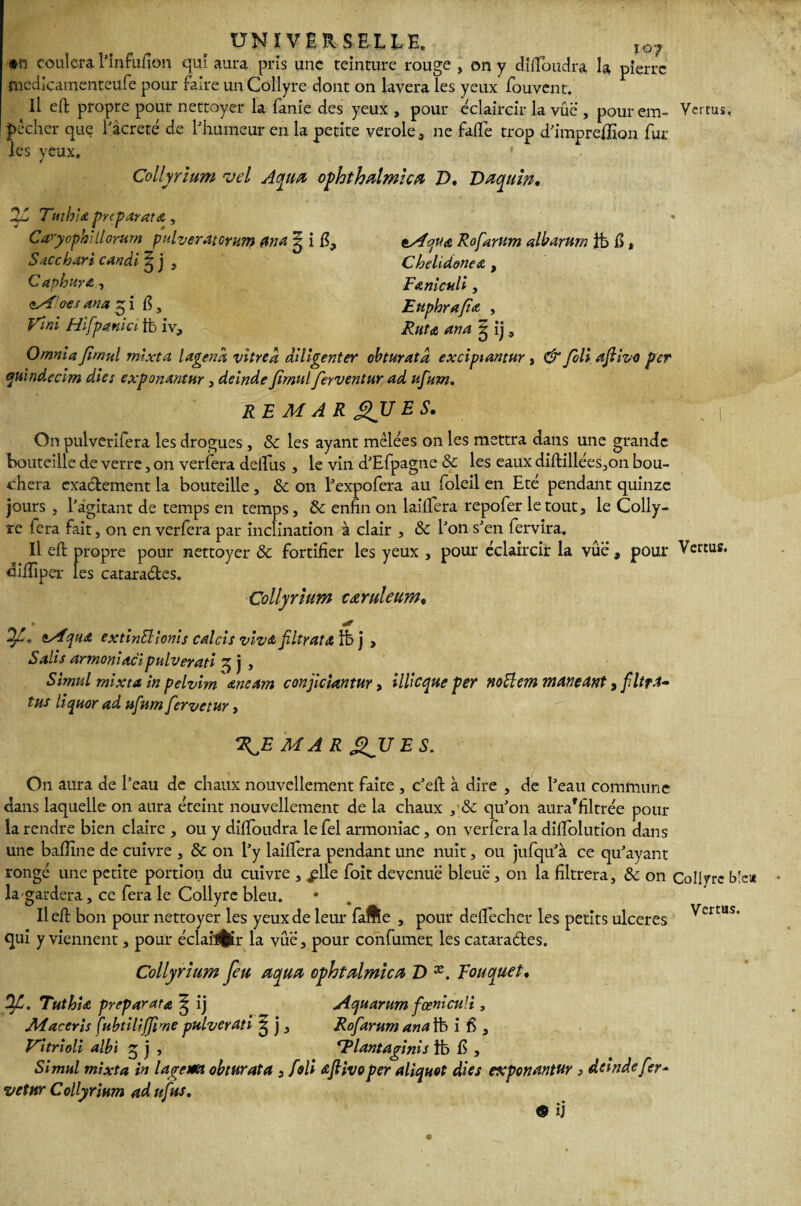 UNIVERSELLE. 107
on coulera l'Infuſion qui aura pris une teinture rouge, on y diſſoudra la pierre
medicamenteuſe pour faire un Collyre dont on lavera les yeux ſouvent.
Il eſt propre pour nettoyer la ſanie des yeux, pour éclaircir la vûë, pour em-
Vertus.
pêcher que l'âcreté de l'humeur en la petite verole, ne faſſe trop d'impreſſion ſur
les yeux.
Collyrium vel Aqua ophthalmica D. Daquin.
℞ Tuthiæ præparatæ,
Caryophillorum pulveratorum ana ℥ i ß,
Sacchari candi ℥ j,
Caphuræ,
Aloes ana ʒ i ß,
Vini Hiſpanici ℔ iv,
Aquæ Roſarum albarum ℔ ß,
Chelidoneæ,
Fœniculi,
Euphraſiæ,
Rutæ ana ℥ ij,
Omnia ſimul mixta lagenâ vitreâ diligenter obturatâ excipiantur, & ſoli æſtivo per
quindecim dies exponantur, deinde ſimul ſerventur ad uſum.
REMARQUES.
On pulveriſera les drogues, & les ayant mêlées on les mettra dans une grande
bouteille de verre, on verſera deſſus, le vin d'Eſpagne & les eaux diſtillées, on bou-
chera exactement la bouteille, & on l'expoſera au ſoleil en Eté pendant quinze
jours, l'agitant de temps en temps, & enfin on laiſſera repoſer le tout, le Colly-
re ſera fait, on en verſera par inclination à clair, & l'on s'en ſervira.
Il eſt propre pour nettoyer & fortifier les yeux, pour éclaircir la vûë, pour
Vertus.
diſſiper les cataractes.
Collyrium cæruleum.
℞. Aquæ extinctionis calcis vivæ filtratæ ℔ j,
Salis armoniaci pulverati ʒ j,
Simul mixta in pelvim æneam conjiciantur, illicque per noctem maneant, filtra-
tus liquor ad uſum ſervetur,
REMARQUES.
On aura de l'eau de chaux nouvellement faite, c'eſt à dire, de l'eau commune
dans laquelle on aura éteint nouvellement de la chaux, & qu'on aura filtrée pour
la rendre bien claire, ou y diſſoudra le ſel armoniac, on verſera la diſſolution dans
une baſſine de cuivre, & on l'y laiſſera pendant une nuit, ou juſqu'à ce qu'ayant
rongé une petite portion du cuivre, elle ſoit devenuë bleuë, on la filtrera, & on
Collyre bleu
la gardera, ce ſera le Collyre bleu.
Il eſt bon pour nettoyer les yeux de leur ſanie, pour deſſecher les petits ulceres
Vertus.
qui y viennent, pour éclaircir la vûë, pour conſumer les cataractes.
Collyrium ſeu aqua ophtalmica D æ. Fouquet.
℞. Tuthiæ præparatæ ℥ ij
Maceris ſubtiliſſime pulverati ℥ j,
Vitrioli albi ʒ j,
Aquarum fœniculi,
Roſarum ana ℔ i ß,
Plantaginis ℔ ß,
Simul mixta in lagena obturata, ſoli æſtivo per aliquot dies exponantur, deinde ſer-
vetur Collyrium ad uſus.
ij